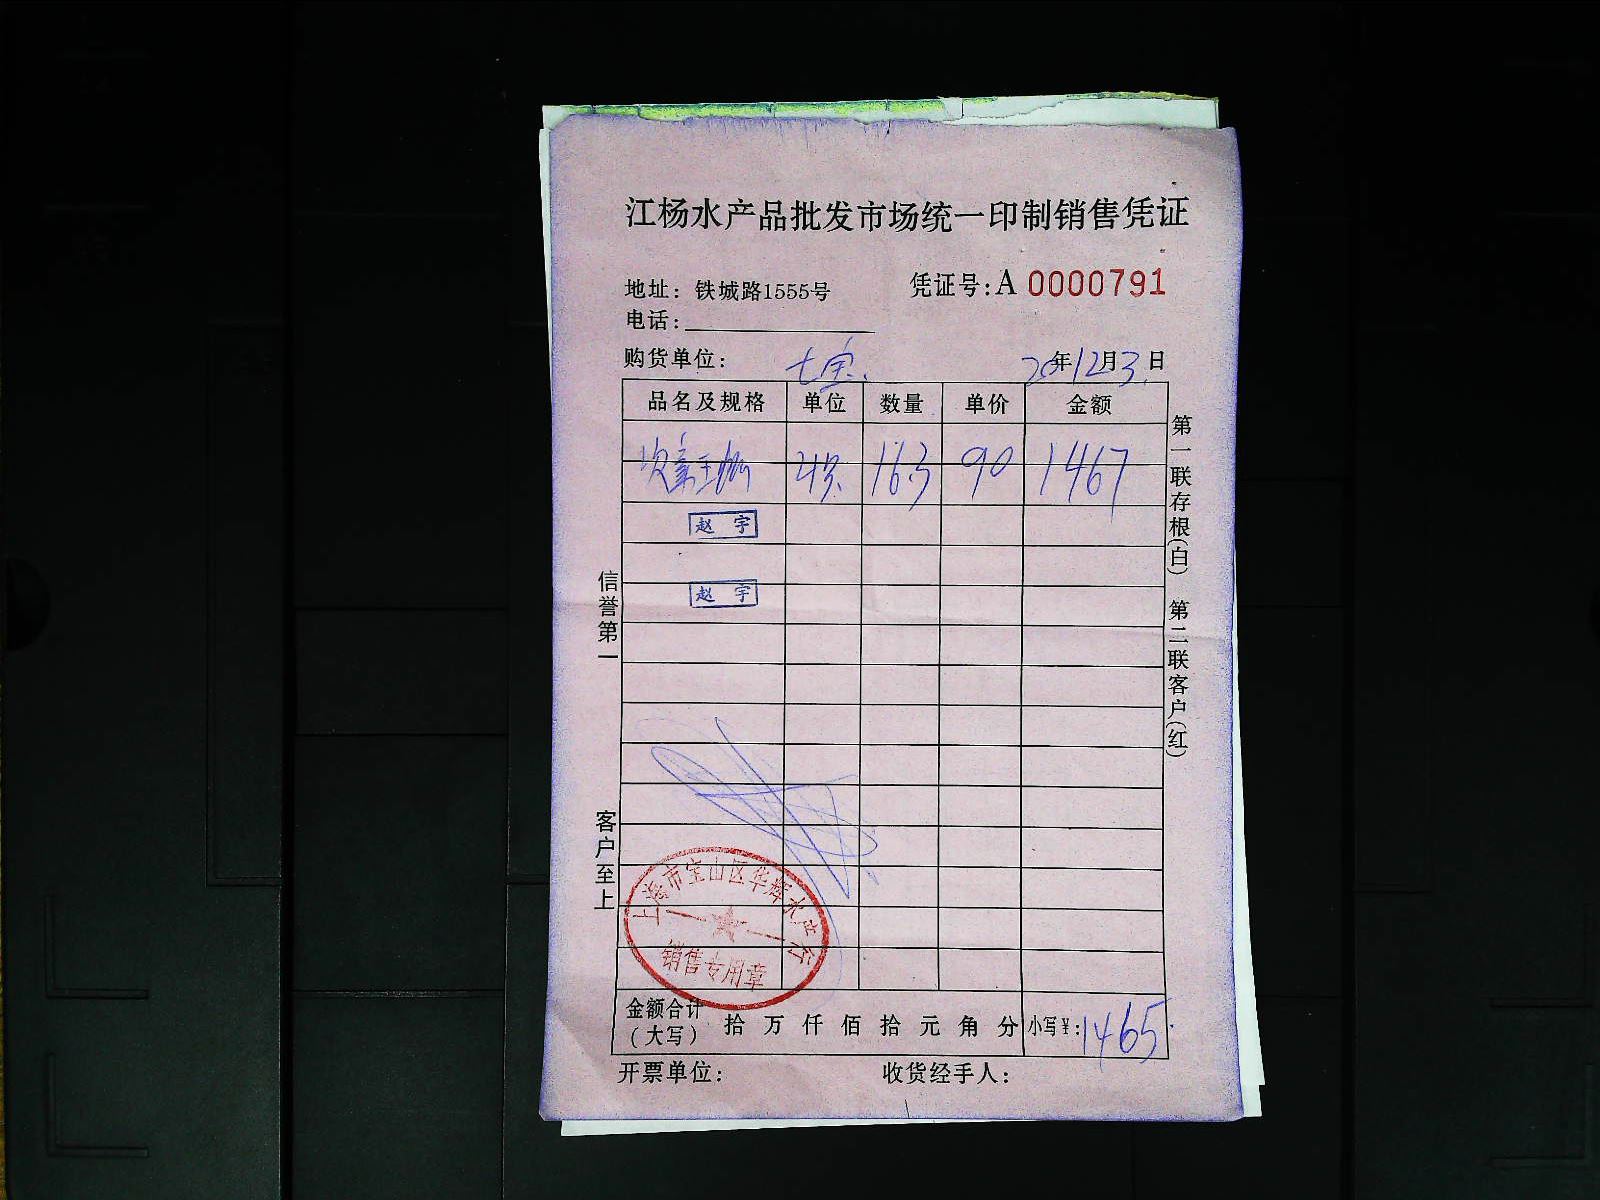 江杨水产品批发市场统一印制销售凭证
地址：铁城路1555号
凭证号：A 0000791
电话：
购货单位：七宝
20年12月3日
品名及规格 单位 数量 单价 金额
163 90 1467
赵宇
赵宇
信誉第一
客户至上
第一联存根(白) 第二联客户(红)
上海市宝山区华辉水产行
销售专用章
金额合计(大写) 拾万仟佰拾元角分 小写¥：1465
开票单位：
收货经手人：